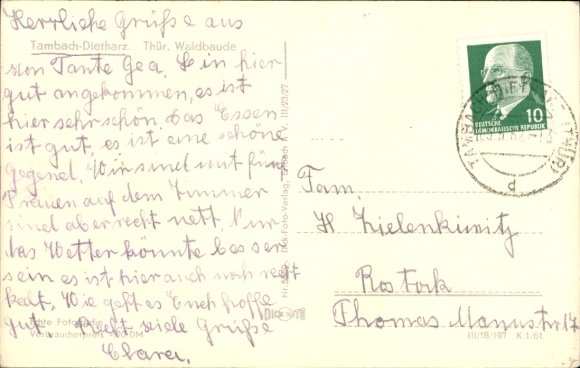 Herrliche Grüße aus
Tambach-Dietharz. Thür. Waldbaude
von Tante Gea. bin hier
gut angekommen, es ist
hier sehr schön das Essen
ist gut, es ist eine schöne
Gegend. Wir sind mit fünf
Frauen auf dem Zimmer
sind aber recht nett. Nur
das Wetter könnte besser
sein es ist hier auch noch recht
kalt. Wie geht es Euch hoffe
gut. Recht viele Grüße
Clara.
Echte Fotografie
Verbraucherpreis DM
Foto-Verlag, Tambach V 11/23/27
DEUTSCHE
DEMOKRATISCHE REPUBLIK
10
(THÜR)
Fam.
H Zielenkiwitz
Rostock
Thomas Mannstr 17
III/18/197 K 1/61